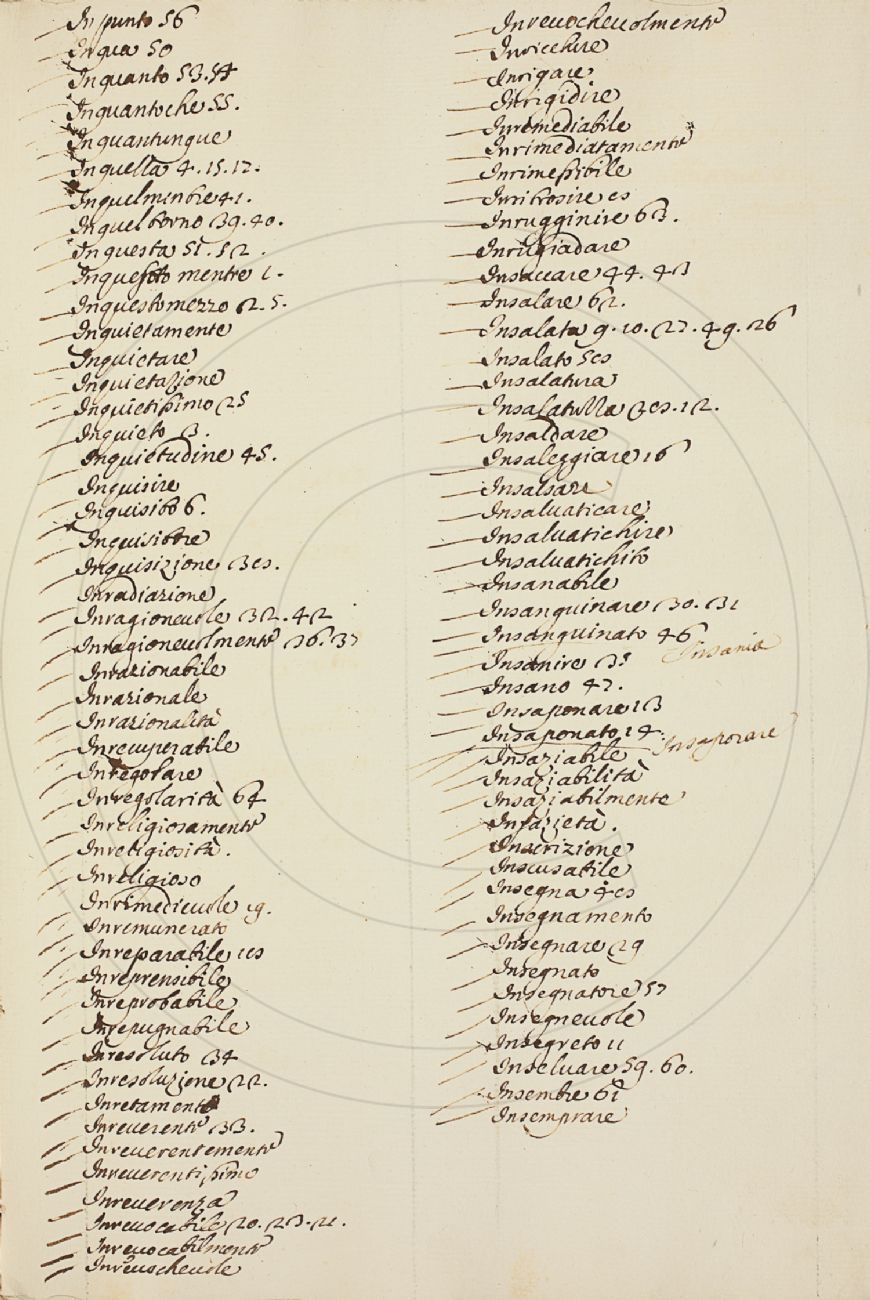 In punto 56
In qua 50
In quanto 53. 54
Inquantoche 55.
Inquantunque
In quella 4. 15. 12.
Inquelmentre 41.
In quel torno 39. 40.
In questa 51. 52.
Inquesto mentre 1.
Inquestomezzo 2. 5.
Inquietamente
Inquietare
Inquietazione
Inquietissimo 25
Inquieto 3.
Inquietudine 45.
Inquisire
Inquisito 6.
Inquisitore
Inquisizione
Inradiazione
Inragioneuole 32. 42
Inragioneuolmente 36. 37
Inrazionabile
Inrazionale
Inrazionalità
Inrecuperabile
Inregolare
Inregolarità 64
Inreligiosamente
Inreligiosità.
Inreligioso
Inrimedieuole 19.
Inremunerato
Inreparabile
Inreprensibile
Inreprobabile
Inrepugnabile
Inresoluto 34
Inresoluzione 22.
Inretamento
Inreuerente 33.
Inreuerentemente
Inreuerentissimo
Inreuerenza
Inreuocabile 20. 23. 21.
Inreuocabilmente
Inreuocheuole
Inreuocheuolmente
Inricchire
Inrigare
Inrigidire
Inremediabile
Inrimediatamente
Inrimessibile
Inritrosire
Inrugginire 63.
Inrugiadare
Insaccare 44. 43
Insalare 62.
Insalata 9. 10. 27. 49. 26
Insalato
Insalatura
Insalatuzza
Insaldare
Insaleggiare 16
Insalsare
Insaluaticare
Insaluatichire
Insaluatichito
Insanabile
Insanguinare 30. 31
Insanguinato 46
Insania
Insanire 35
Insano 47.
Insaponare 13
Insaponato 14.
Insaporare
Insaziabile
Insaziabilità
Insaziabilmente
Insazietà.
Inscrizione
Inscusabile
Insegna
Insegnamento
Insegnare 29
Insegnato
Insegnatore 57
Insegneuole
Insegreto 11
Inseluare 59. 60.
Insembre 61
Insemprare